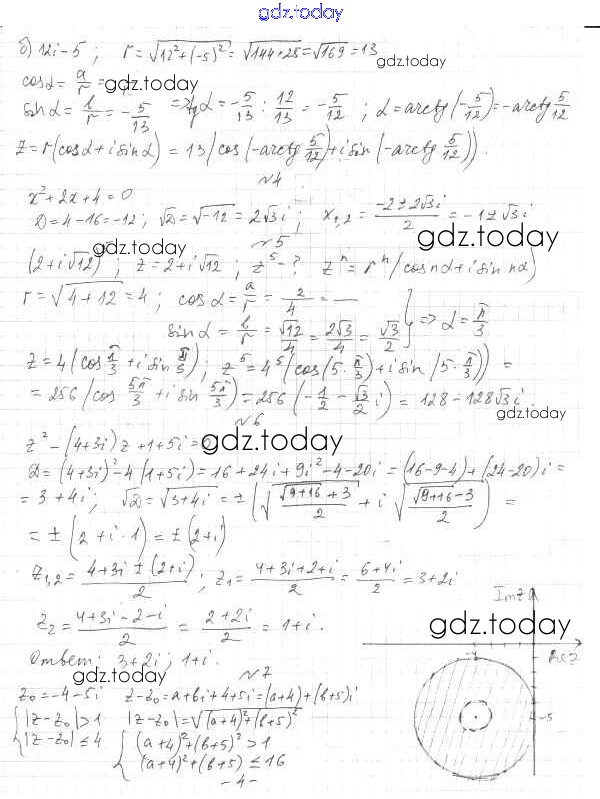 gdz.today
б) 12i-5 ; r=√(12²+(-5)²)=√(144+25)=√169=13
gdz.today
cosα= a/r =
sinα= b/r = -5/13 => tgα = -5/13 : 12/13 = -5/12 ; α=arctg(-5/12)=-arctg 5/12
z=r(cosα+i sinα) = 13(cos(-arctg 5/12)+i sin(-arctg 5/12)).
№4
x²+2x+4=0
D=4-16=-12; √D=√-12=2√3i; x₁,₂ = (-2±2√3i)/2 = -1±√3i
gdz.today
gdz.today
№5
(2+i√12) ; z=2+i√12 ; z⁵-? zⁿ=rⁿ(cos nα+i sin nα)
r=√(4+12)=4; cosα= a/r = 2/4 =
sinα = b/r = √12/4 = 2√3/4 = √3/2 } => α=π/3
z=4(cos π/3 + i sin π/3); z⁵=4⁵(cos(5·π/3)+i sin(5·π/3)) =
=256(cos 5π/3 + i sin 5π/3)=256(-1/2 - √3/2 i) = 128-128√3i.
gdz.today
№6
z²-(4+3i)z+1+5i=0
gdz.today
D=(4+3i)²-4(1+5i)=16+24i+9i²-4-20i=(16-9-4)+(24-20)i=
=3+4i; √D=√(3+4i)=±(√((√(9+16)+3)/2)+i√((√(9+16)-3)/2)) =
=±(2+i·1)=±(2+i)
z₁,₂= (4+3i±(2+i))/2; z₁= (4+3i+2+i)/2 = (6+4i)/2 =3+2i
z₂= (4+3i-2-i)/2 = (2+2i)/2 = 1+i.
Ответ: 3+2i; 1+i.
gdz.today
gdz.today
№7
z₀=-4-5i z-z₀=a+bi+4+5i=(a+4)+(b+5)i
{|z-z₀|>1 |z-z₀|=√((a+4)²+(b+5)²)
{|z-z₀|≤4 {(a+4)²+(b+5)²>1
{(a+4)²+(b+5)≤16
-4-
Im z
Re z
-4
-5
gdz.today